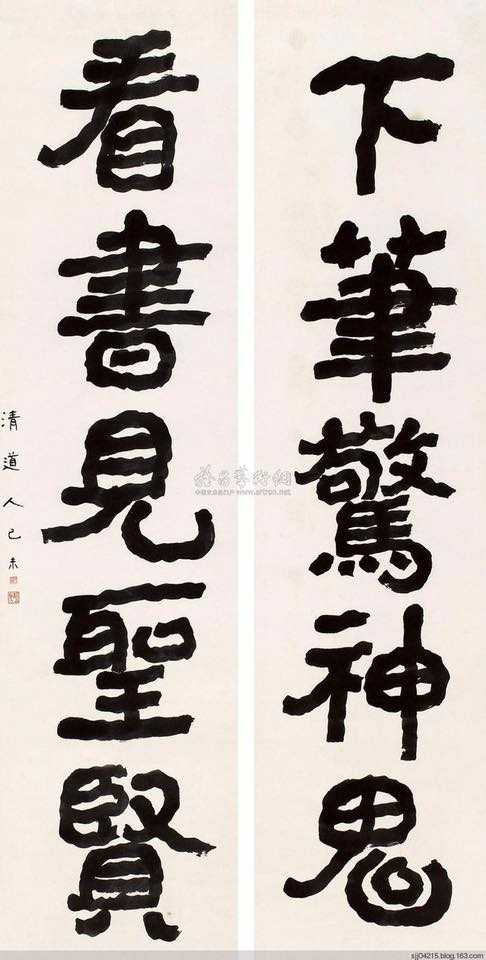 下筆驚神鬼
看書見聖賢
清道人己未
www.artron.net
sjj04215.blog.163.com